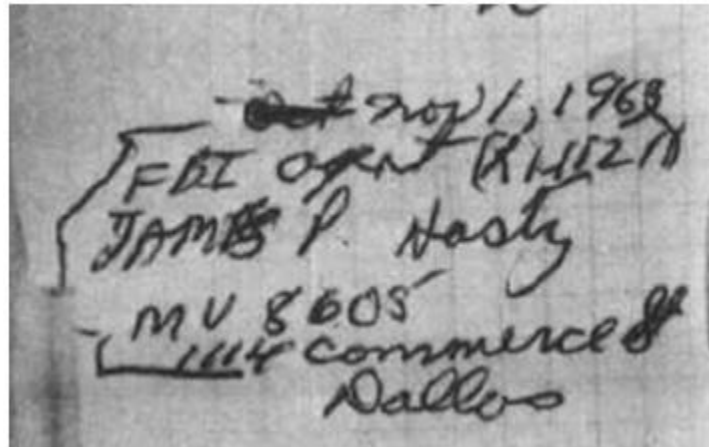 Nov 1, 1963
FBI agent (RI11211)
JAMES P. Hasty
MU 8605
1114 Commerce St
Dallas